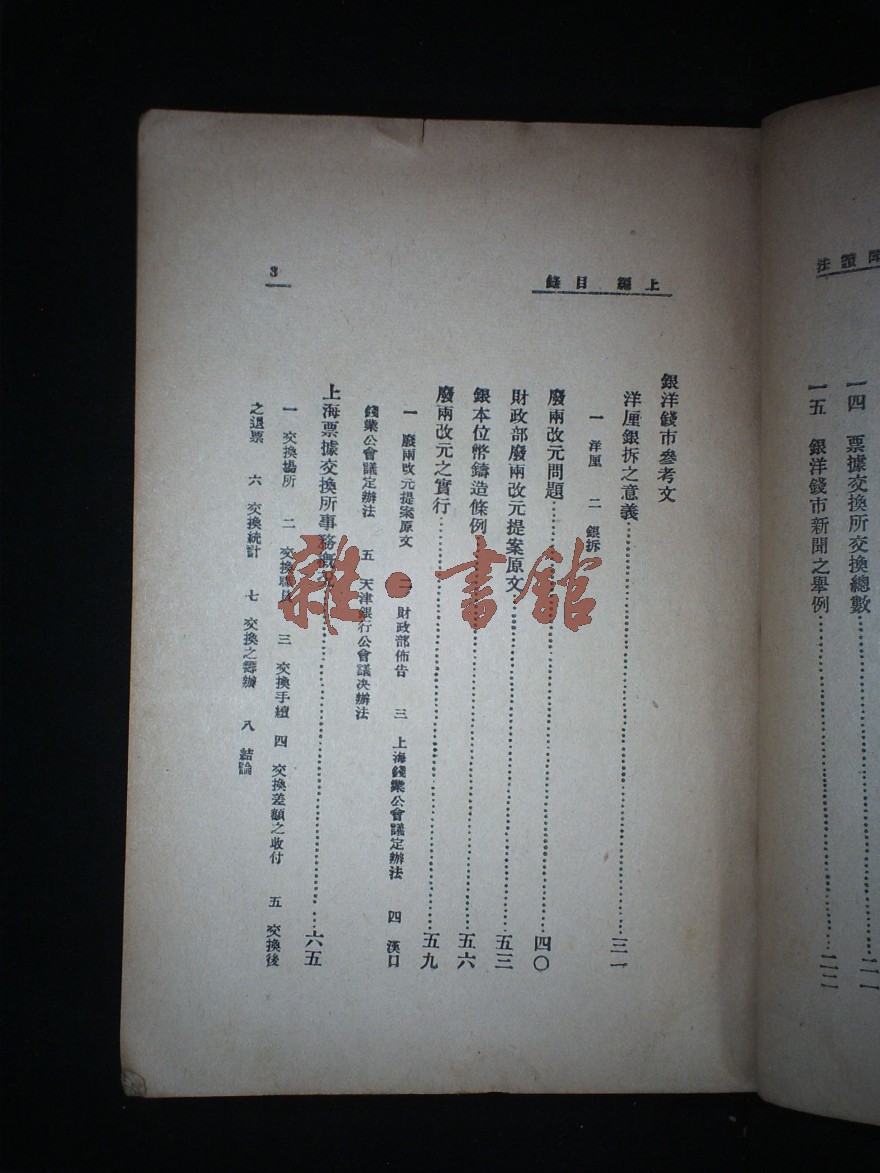 法讀
一四 票據交換所交換總數……二一
一五 銀洋錢市新聞之舉例……二二
上編 目錄
3
銀洋錢市參考文
洋厘銀拆之意義……三一
一 洋厘 二 銀拆
廢兩改元問題……四〇
財政部廢兩改元提案原文……五三
銀本位幣鑄造條例……五六
廢兩改元之實行……五九
一 廢兩改元提案原文 二 財政部佈告 三 上海錢業公會議定辦法 四 漢口
錢業公會議定辦法 五 天津銀行公會議決辦法
上海票據交換所事務概況……六五
一 交換場所 二 交換職員 三 交換手續 四 交換差額之收付 五 交換後
之退票 六 交換統計 七 交換之籌辦 八 結論
雜·書館